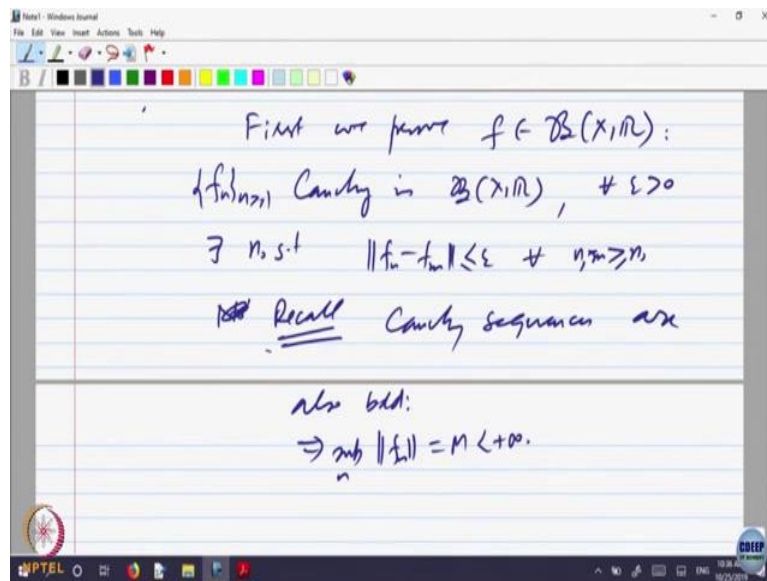 Note1 - Windows Journal
File Edit View Insert Actions Tools Help
B I
First we prove f ∈ B(X,R):
{fn}n≥1 Cauchy in B(X,R), ∀ ε>0
∃ n0 s.t ||fn-fm|| ≤ ε ∀ n,m ≥ n0
Recall Cauchy sequences are
also bdd:
⇒ sup n ||fn|| = M < +∞.
NPTEL
CDEEP
ENG
10/25/2019